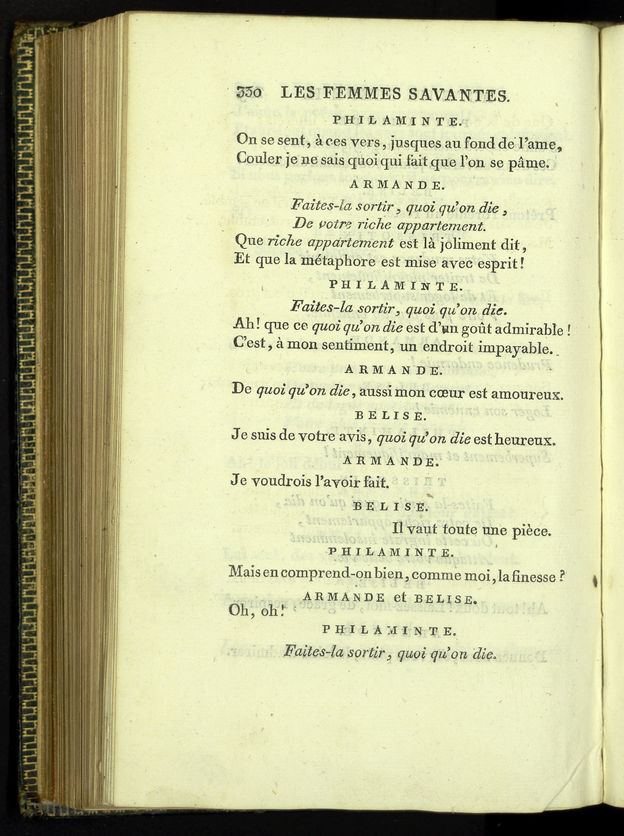 330 LES FEMMES SAVANTES.
PHILAMINTE.
On se sent, à ces vers, jusques au fond de l'ame,
Couler je ne sais quoi qui fait que l'on se pâme.
ARMANDE.
Faites-la sortir, quoi qu'on die,
De votre riche appartement.
Que riche appartement est là joliment dit,
Et que la métaphore est mise avec esprit!
PHILAMINTE.
Faites-la sortir, quoi qu'on die.
Ah! que ce quoi qu'on die est d'un goût admirable!
C'est, à mon sentiment, un endroit impayable.
ARMANDE.
De quoi qu'on die, aussi mon cœur est amoureux.
BELISE.
Je suis de votre avis, quoi qu'on die est heureux.
ARMANDE.
Je voudrois l'avoir fait.
BELISE.
Il vaut toute une pièce.
PHILAMINTE.
Mais en comprend-on bien, comme moi, la finesse?
ARMANDE et BELISE.
Oh, oh!
PHILAMINTE.
Faites-la sortir, quoi qu'on die.